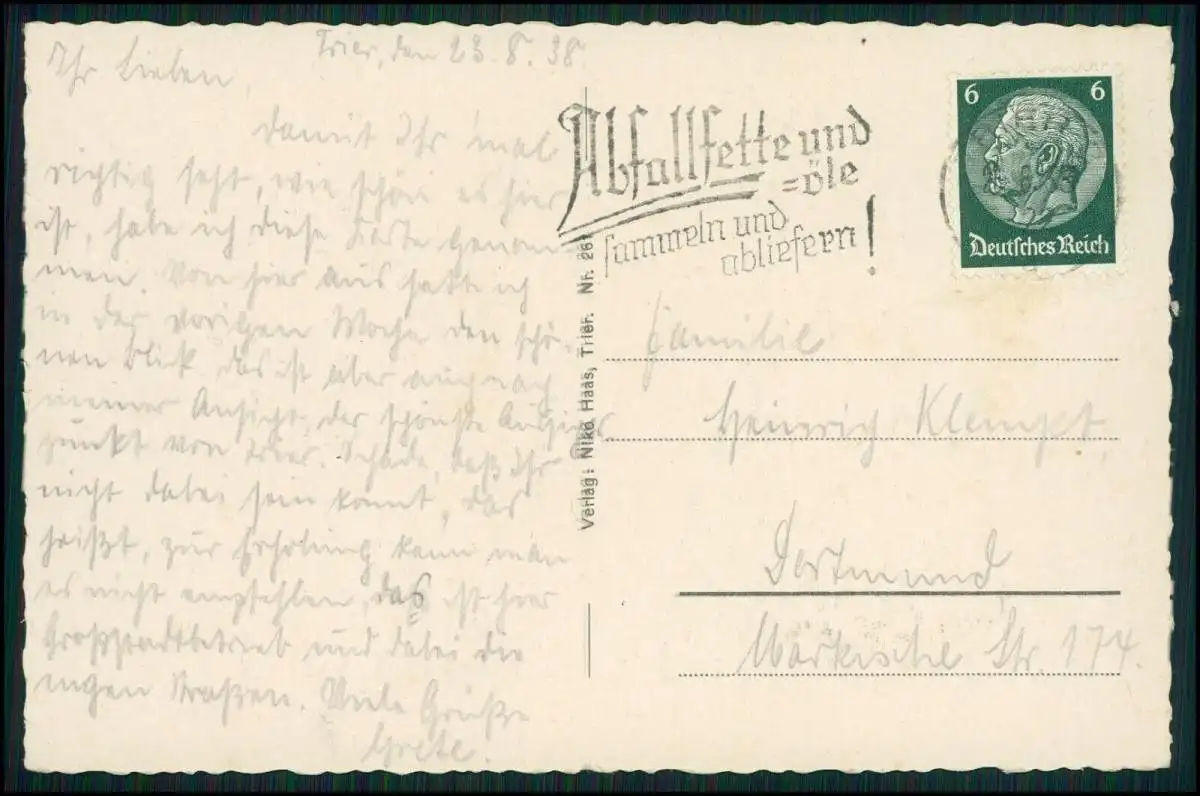 Trier, den 23.8.38
Ihr Lieben,
Damit Ihr mal
richtig seht, wie schön es hier
ist, habe ich diese Karte genom-
men. Von hier aus hatte ich
in der vorigen Woche den schö-
nen Blick. Das ist aber auch nach
meiner Ansicht der schönste Aussichts
punkt von Trier. Schade, daß Ihr
nicht dabei sein konnt, das
heißt, zur Erholung kann man
es nicht empfehlen, das ist hier
Großstadtbetrieb und dabei die
engen Straßen. Viele Grüße
Grete.
Verlag: Niko Haas, Trier. Nr. 26
Abfallfette und
=öle
sammeln und
abliefern!
6 6
Deutsches Reich
Familie
Heinrich Klempt,
Dortmund,
Märkische Str. 174.